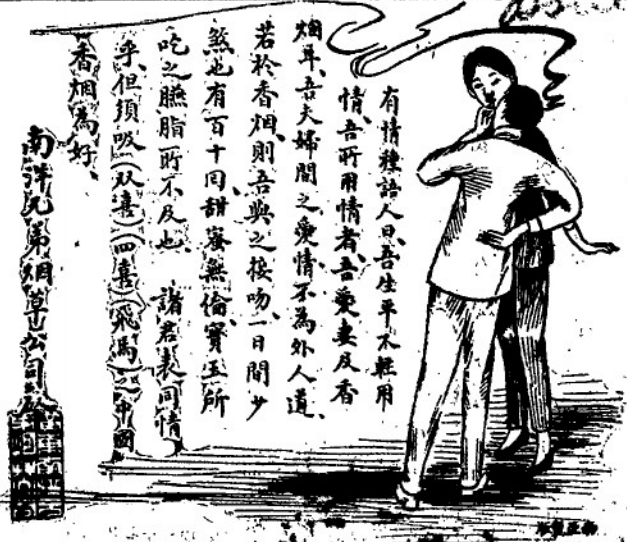 有情種語人曰、吾生平不輕用
情、吾所用情者、吾愛妻及香
烟耳、吾夫婦間之愛情、不為外人道、
若於香烟、則吾與之接吻、一日間少
煞也有百十囘、甜蜜無倫、寳玉所
吃之臙脂所不及也、諸君表同情
乎、但須吸(双喜)(四喜)(飛馬)之中國
香烟為好、
南洋兄弟烟草公司啟